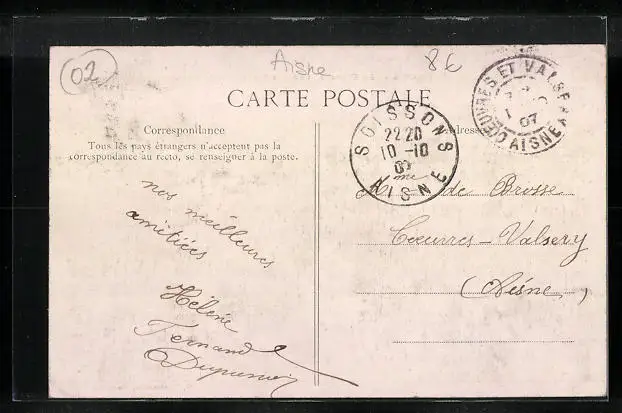 02
Aisne
8€
CARTE POSTALE
Correspondance
Tous les pays étrangers n'acceptent pas la
correspondance au recto, se renseigner à la poste.
nos meilleures
amitiées
Hélène
Fernand
Adresse
SOISSONS
22 20
10-10
07
AISNE
CŒUVRES ET VALSERY
07
AISNE
Mme de Brosse
Cœuvres-Valsery
(Aisne,)